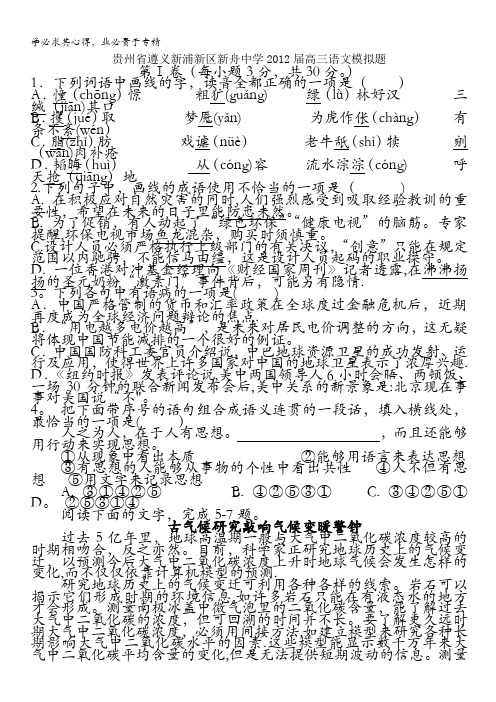 学必求其心得，业必贵于专精
贵州省遵义新浦新区新舟中学2012届高三语文模拟题
第Ⅰ卷（每小题3分，共30分。）
1．下列词语中画线的字，读音全都正确的一项是（ ）
A．憧(chōng)憬 粗犷(guǎng) 绿（lù）林好汉 三
缄（jiān)其口
B．攫(jué)取 梦魇(yǎn) 为虎作伥(chàng) 有
条不紊(wěn)
C．脂(zhī)肪 戏谑（nüè） 老牛舐(shì)犊 剜
(wān)肉补疮
D．韬晦(huì) 从(cóng)容 流水淙淙(cóng) 呼
天抢（qiāng）地
2.下列句子中，画线的成语使用不恰当的一项是（ ）
A. 在积极应对自然灾害的同时,人们强烈感受到吸取经验教训的重
要性，希望在未来的日子里能防患未然。
B．为了促销，有人动起了“绿色环保”“健康电视”的脑筋。专家
提醒,环保电视市场鱼龙混杂，购买时须慎重。
C.设计人员必须严格执行上级部门的有关决议，“创意”只能在规定
范围以内驰骋，不能信马由缰，这是设计人员起码的职业操守。
D. 一位香港对冲基金经理向《财经国家周刊》记者透露,在沸沸扬
扬的圣元奶粉“激素门”事件背后，可能另有隐情.
3。下列各句中有语病的一项是( )
A．中国严格管制的货币和汇率政策在全球度过金融危机后，近期
再度成为全球经济问题辩论的焦点。
B．“用电越多电价越高”，是未来对居民电价调整的方向,这无疑
将体现中国节能减排的一个很好的例证。
C．中国国防科工委官员介绍说，中巴地球资源卫星的成功发射、运
行及应用，使得世界上许多国家对中国的地球卫星表示了浓厚兴趣.
D.《纽约时报》发表评论说,美中两国领导人6小时会晤、两顿饭、
一场30分钟的联合新闻发布会后,美中关系的新景象是:北京现在事
事对美国说“不”。
4。 把下面带序号的语句组合成语义连贯的一段话，填入横线处，
最恰当的一项是( )
人之为人，在于人有思想。 ，而且还能够
用行动来实现思想。
①从现象中看出本质 ②能够用语言来表达思想
③有思想的人能够从事物的个性中看出共性 ④人不但有思
想 ⑤用文字来记录思想
A．③①④②⑤ B．④②⑤③① C．③④②⑤①
D。 ②⑤③①④
阅读下面的文字，完成5-7题。
古气候研究敲响气候变暖警钟
过去5亿年里，地球高温期一般与大气中二氧化碳浓度较高的
时期相吻合，反之亦然。目前，科学家正研究地球历史上的气候变
迁，以预测今后大气中二氧化碳浓度上升时地球气候会发生怎样的
变化,而不仅仅依靠计算机模型的预测.
研究地球历史上的气候变迁可利用各种各样的线索。岩石可以
揭示它们形成时期的环境信息,如许多岩石只能在有液态水的地方
才会形成。测量南极冰盖中微气泡里的二氧化碳含量，能了解过去
大气中二氧化碳的浓度，但可回溯的时间并不长。要了解更久远时
期大气中二氧化碳浓度，必须用间接方法,如建立模型来研究各种长
期影响大气中二氧化碳水平的因素,这些模型能显示数千万年来大
气中二氧化碳平均含量的变化,但是无法提供短期波动的信息。测量